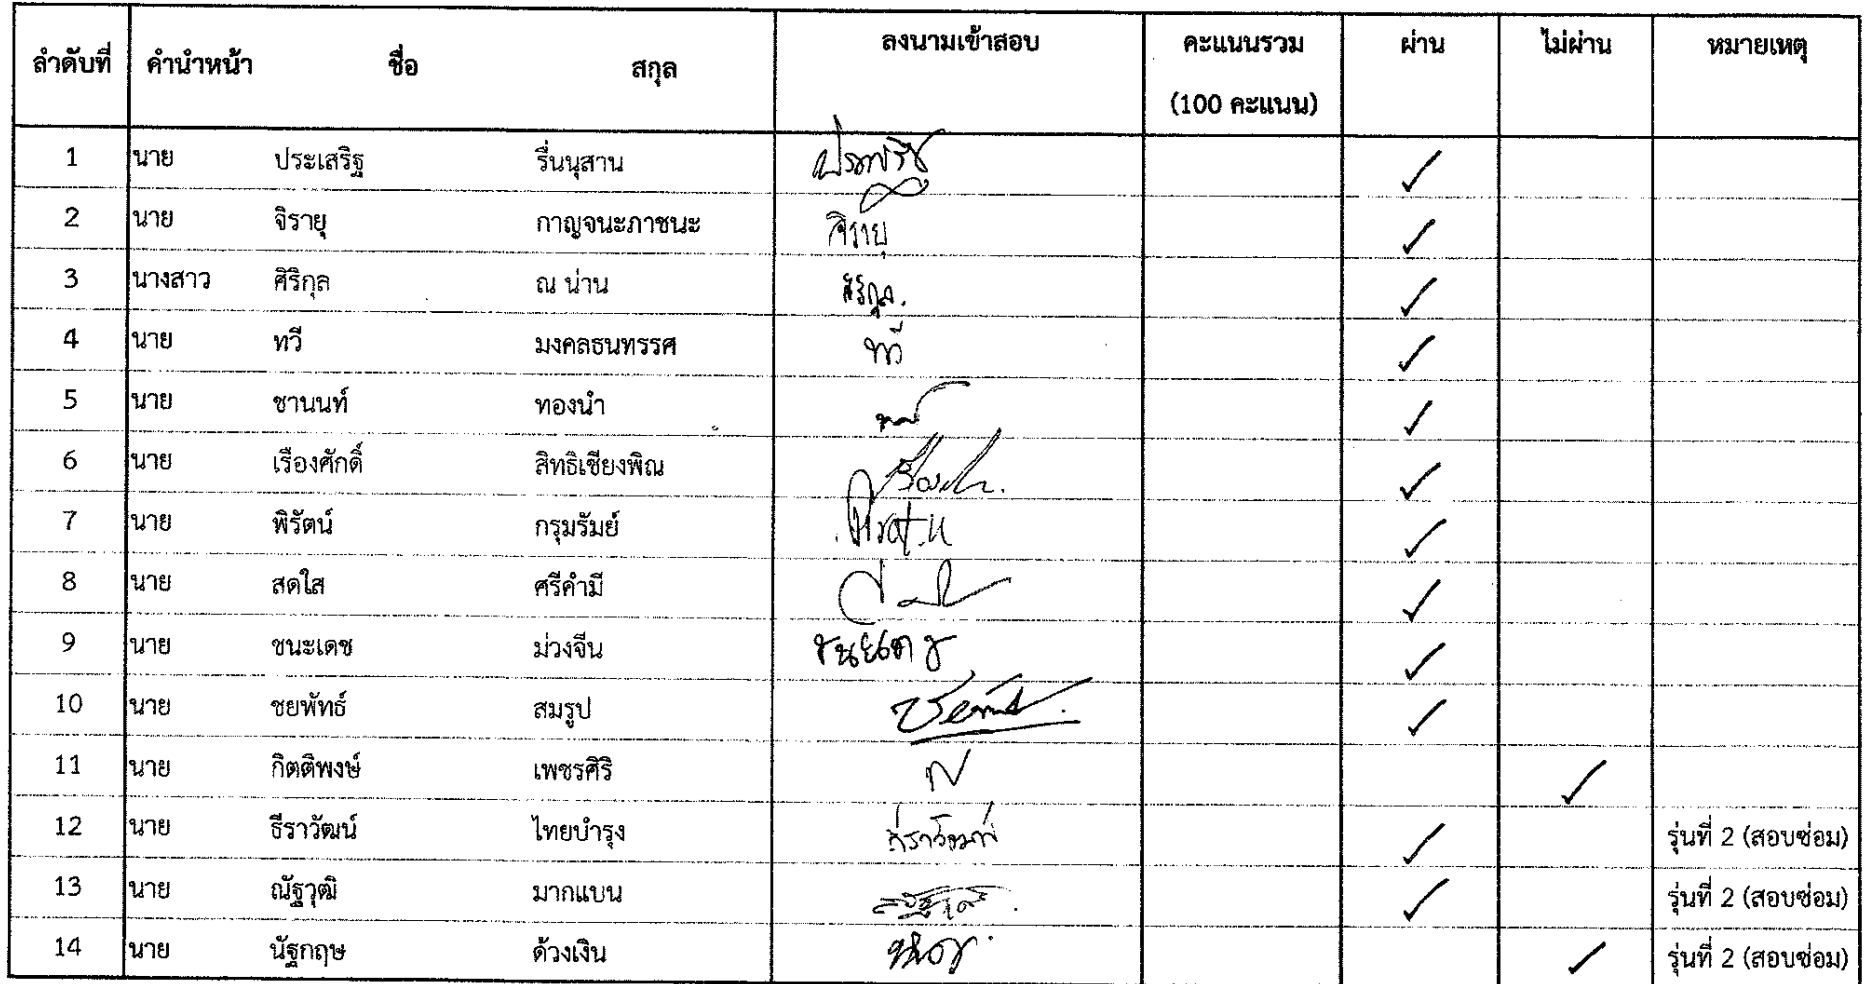 ลำดับที่ คำนำหน้า ชื่อ สกุล ลงนามเข้าสอบ คะแนนรวม (100 คะแนน) ผ่าน ไม่ผ่าน หมายเหตุ
1 นาย ประเสริฐ รื่นนุสาน ประเสริฐ ✓
2 นาย จิรายุ กาญจนะภาชนะ จิรายุ ✓
3 นางสาว ศิริกุล ณ น่าน ศิริกุล. ✓
4 นาย ทวี มงคลธนทรรศ ทวี ✓
5 นาย ชานนท์ ทองนำ ✓
6 นาย เรืองศักดิ์ สิทธิเชียงพิณ ✓
7 นาย พิรัตน์ กรุมรัมย์ ✓
8 นาย สดใส ศรีคำมี ✓
9 นาย ชนะเดช ม่วงจีน ชนะเดช ✓
10 นาย ชยพัทธ์ สมรูป ✓
11 นาย กิตติพงษ์ เพชรศิริ ✓
12 นาย ธีราวัฒน์ ไทยบำรุง ธีราวัฒน์ ✓ รุ่นที่ 2 (สอบซ่อม)
13 นาย ณัฐวุฒิ มากแบน ✓ รุ่นที่ 2 (สอบซ่อม)
14 นาย นัฐกฤษ ด้วงเงิน ✓ รุ่นที่ 2 (สอบซ่อม)